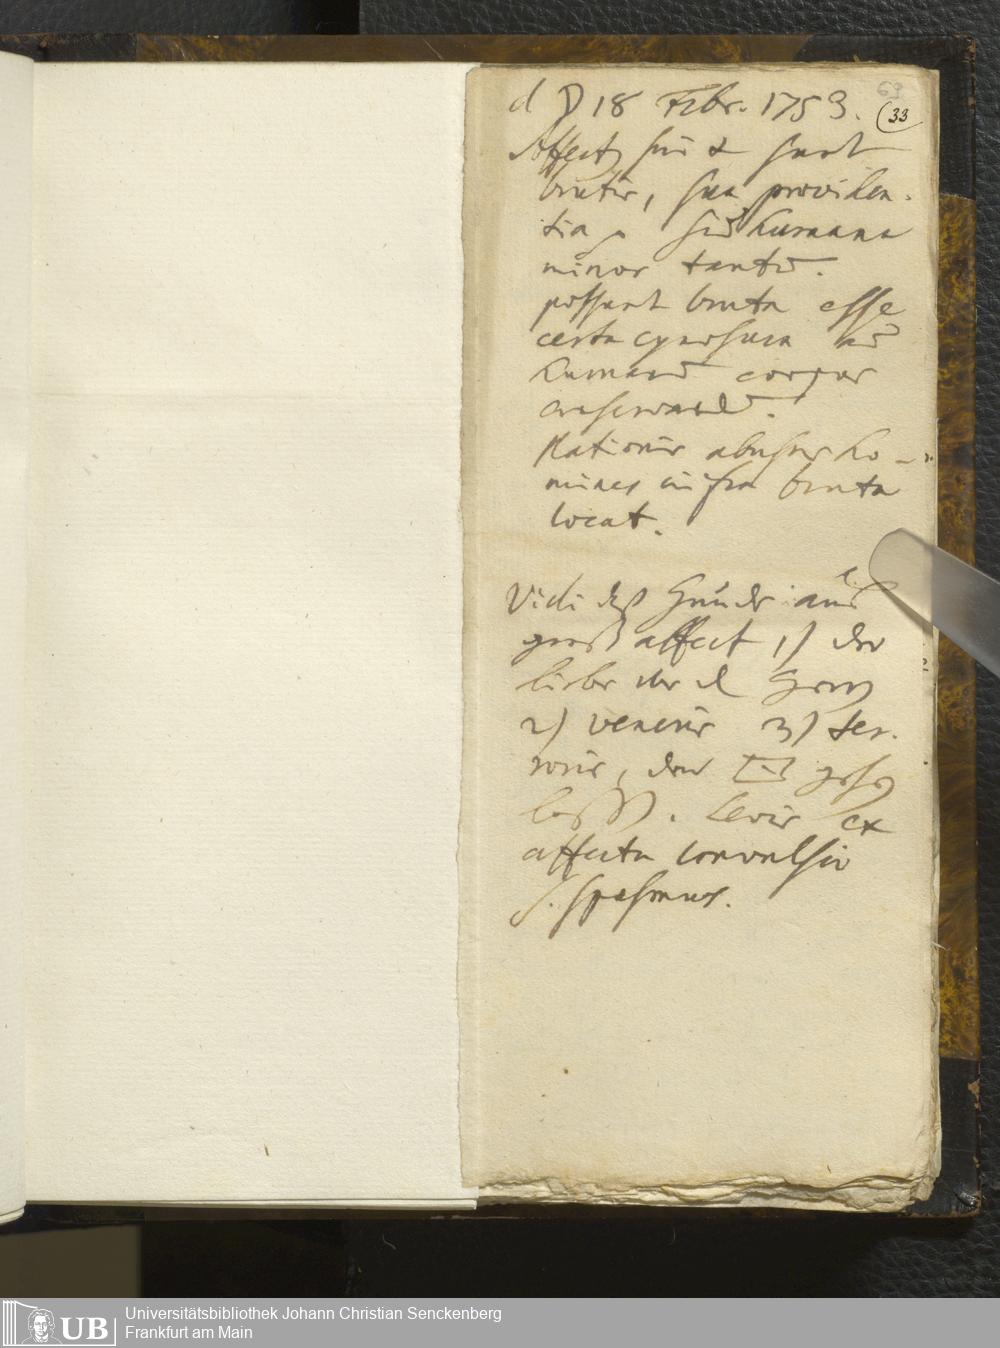 63
d ☽ 18 Febr. 1753. (33
Affectus sui & sunt
brutis, sua providen-
tia, sed humana
minor tantum.
possunt bruta esse
certa cynosura ad
humanum corpus
conservandum.
Rationis abusus ho-
mines infra bruta
locat.
Vidi daß Hunde auch
groß affect 1) der
liebe
2) veneris 3) ter-
roris, den
. Levis ex
affectu convulsio
s. spasmus.
UB
Universitätsbibliothek Johann Christian Senckenberg
Frankfurt am Main